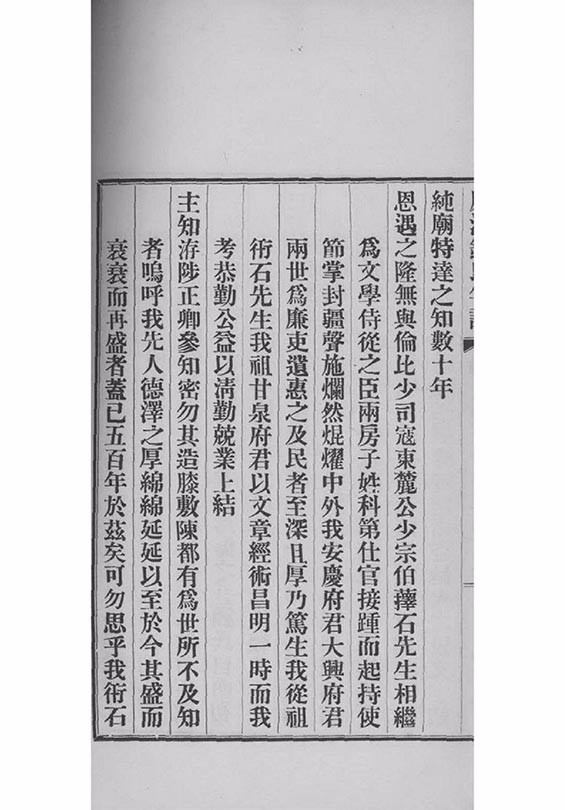 純廟特達之知數十年
恩遇之隆無與倫比少司寇東麓公少宗伯蘀石先生相繼
爲文學侍從之臣兩房子姓科第仕官接踵而起持使
節掌封疆聲施爛然焜燿中外我安慶府君大興府君
兩世爲廉吏遺惠之及民者至深且厚乃篤生我從祖
衎石先生我祖甘泉府君以文章經術昌明一時而我
考恭勤公益以淸勤兢業上結
主知洊陟正卿參知密勿其造膝敷陳都有爲世所不及知
者嗚呼我先人德澤之厚綿綿延延以至於今其盛而
衰衰而再盛者蓋已五百年於茲矣可勿思乎我衎石